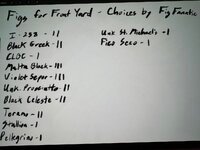 Figs for Front Yard - Choices by Fig Fanatic
I-258 - II
Black Greek - II
CLBC - I
Malta Black - III
Violet Sepor - III
Unk. Prosciutto - II
Black Celeste - II
Teramo - II
Stallion - I
Pellegrino - I
Unk St. Michaels - I
Fico Secco - I